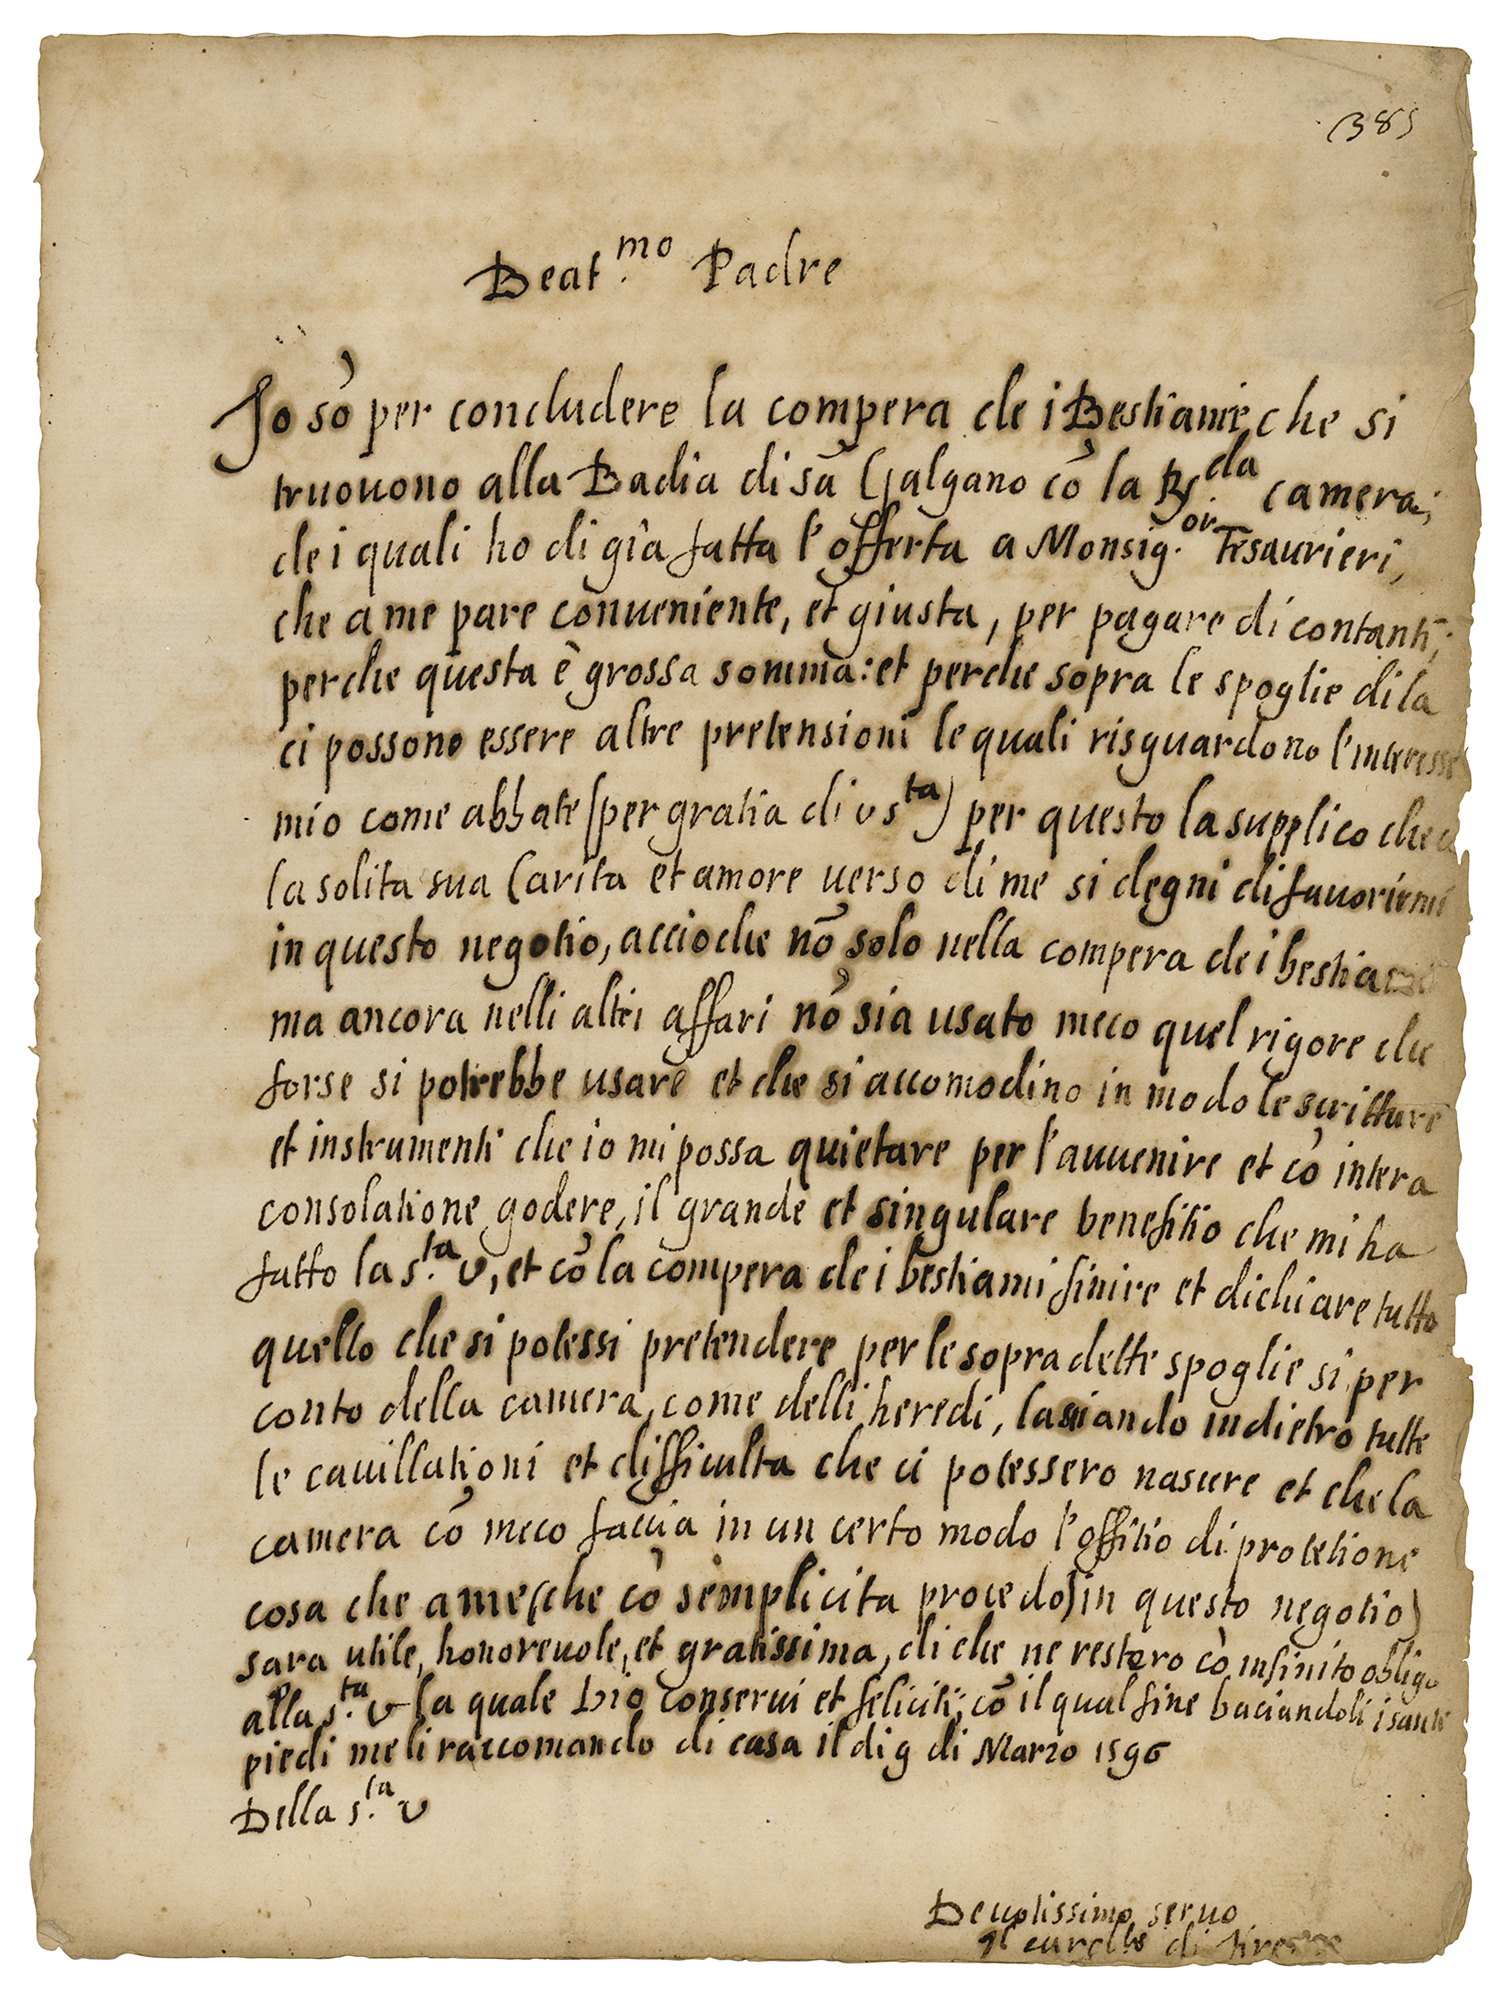 385
Beat.mo Padre
Io sō per concludere la compera de i Bestiami che si
truovono alla Badia di sā Galgano cō la R.da camera;
de i quali ho di già fatta l'offerta a Monsig.or Tesaurieri,
che a me pare conveniente, et giusta, per pagare di contanti;
perche questa è grossa somma: et perche sopra le spoglie di la
ci possono essere altre pretensioni le quali risguardono l'interesse
mio come abbate (per gratia di v sta) per questo la supplico che
la solita sua Carita et amore verso di me si degni di favorirmi
in questo negotio, accioche nō solo nella compera de i bestiami
ma ancora nelli altri affari nō sia usato meco quel rigore che
forse si potrebbe usare et che si accomodino in modo le scritture
et instrumenti che io mi possa quietare per l'auuenire et cō intera
consolatione godere, il grande et singulare benefitio che mi ha
fatto la s.ta v, et cō la compera de i bestiami finire et dichiare tutto
quello che si potessi pretendere per le sopradette spoglie si per
conto della camera, come delli heredi, lasciando indietro tutte
le cavillationi et difficulta che ci potessero nascere et che la
camera cō meco faccia in un certo modo l'offitio di protetione
cosa che a me (che cō semplicita procedo in questo negotio)
sara utile, honorevole, et gratissima, di che ne restero cō infinito obligo
alla s.ta v la quale Dio conservi et feliciti; cō il qual fine baciandoli i santi
piedi me li raccomando di casa il di 9 di Marzo 1596
Della s.ta v
Devotissimo servo
Il di firenze